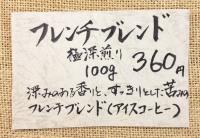 フレンチブレンド
極深煎り
100g 360円
深みのある香りと、すっきりとした苦みの
フレンチブレンド(アイスコーヒー)